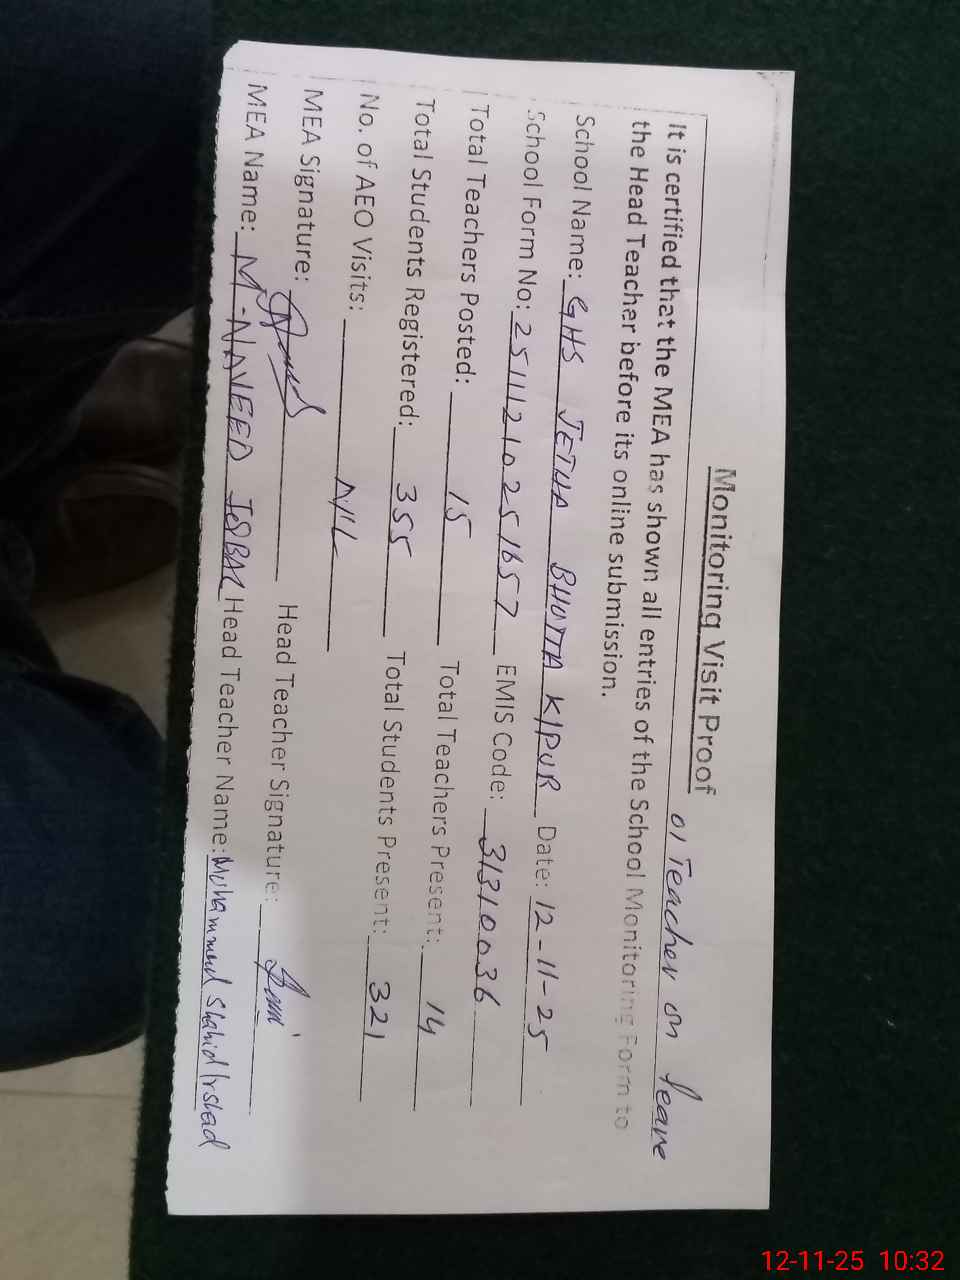 Monitoring Visit Proof
01 Teacher on leave
It is certified that the MEA has shown all entries of the School Monitoring Form to
the Head Teacher before its online submission.
School Name: GHS JETHA BHUTTA K/PUR Date: 12-11-25
School Form No: 25111210251657 EMIS Code: 31310036
Total Teachers Posted: 15 Total Teachers Present: 14
Total Students Registered: 355 Total Students Present: 321
No. of AEO Visits: NIL
MEA Signature: Head Teacher Signature:
MEA Name: M-NAVEED IQBAL Head Teacher Name: Muhammad Shahid Irshad
12-11-25 10:32